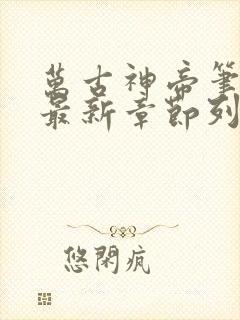 萬古神帝筆
最新章節列
悠閑瘋